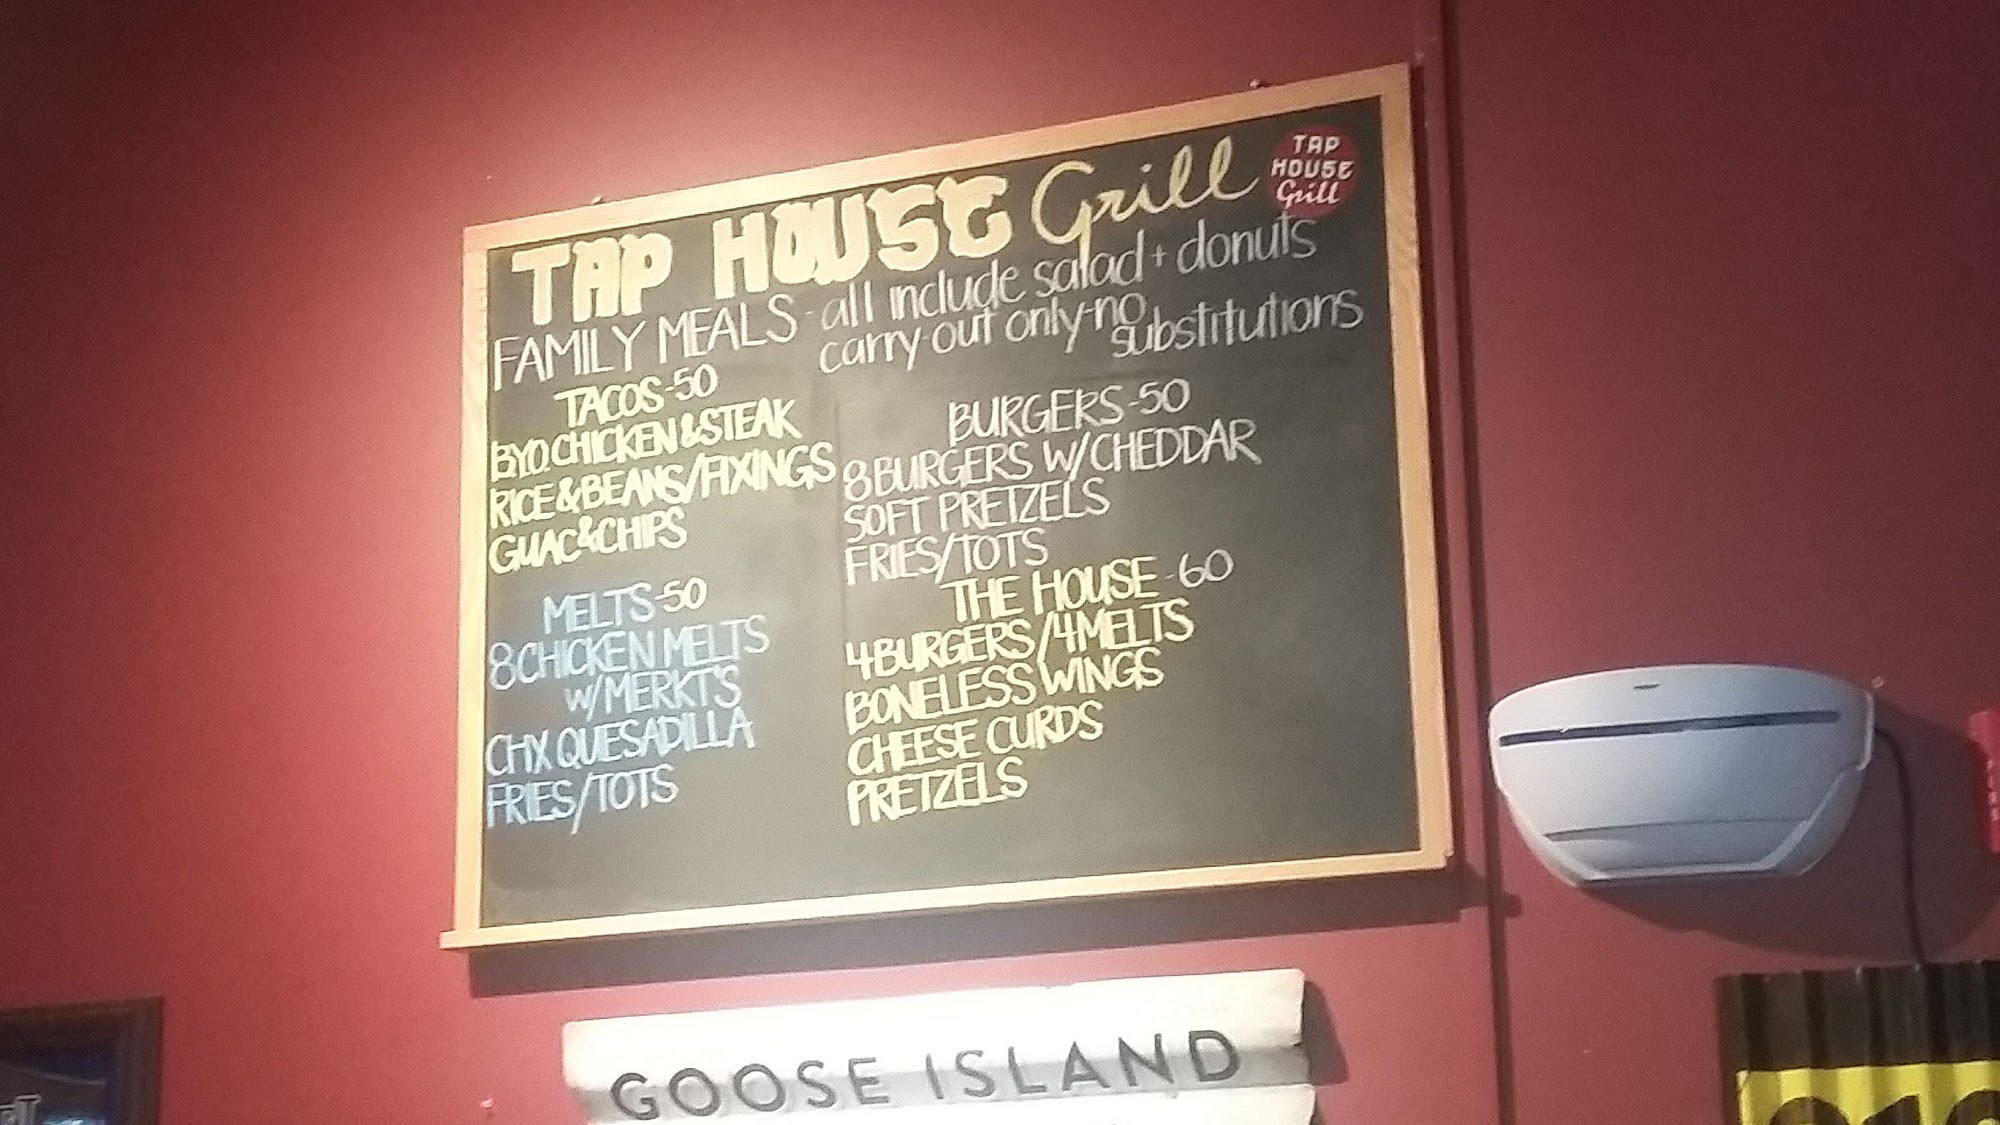 TAP HOUSE Grill
TAP
HOUSE
Grill
FAMILY MEALS - all include salad + donuts
carry-out only-no substitutions
TACOS-50
B.Y.O. CHICKEN & STEAK
RICE & BEANS/FIXINGS
GUAC & CHIPS
MELTS-50
8 CHICKEN MELTS
W/MERKT'S
CHX QUESADILLA
FRIES/TOTS
BURGERS-50
8 BURGERS W/CHEDDAR
SOFT PRETZELS
FRIES/TOTS
THE HOUSE-60
4 BURGERS/4 MELTS
BONELESS WINGS
CHEESE CURDS
PRETZELS
GOOSE ISLAND